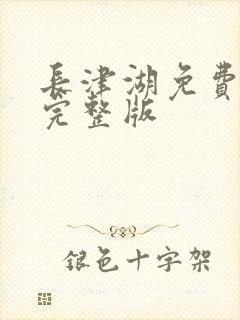 長津湖免費
完整版
銀色十字架